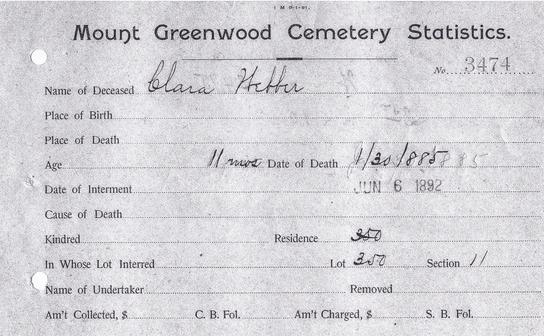 Mount Greenwood Cemetery Statistics.
No. 3474
Name of Deceased Clara Webber
Place of Birth
Place of Death
Age 11 mos Date of Death 1/30/1885
Date of Interment JUN 6 1892
Cause of Death
Kindred Residence 350
In Whose Lot Interred Lot 350 Section 11
Name of Undertaker Removed
Am't Collected, $ C. B. Fol. Am't Charged, $ S. B. Fol.